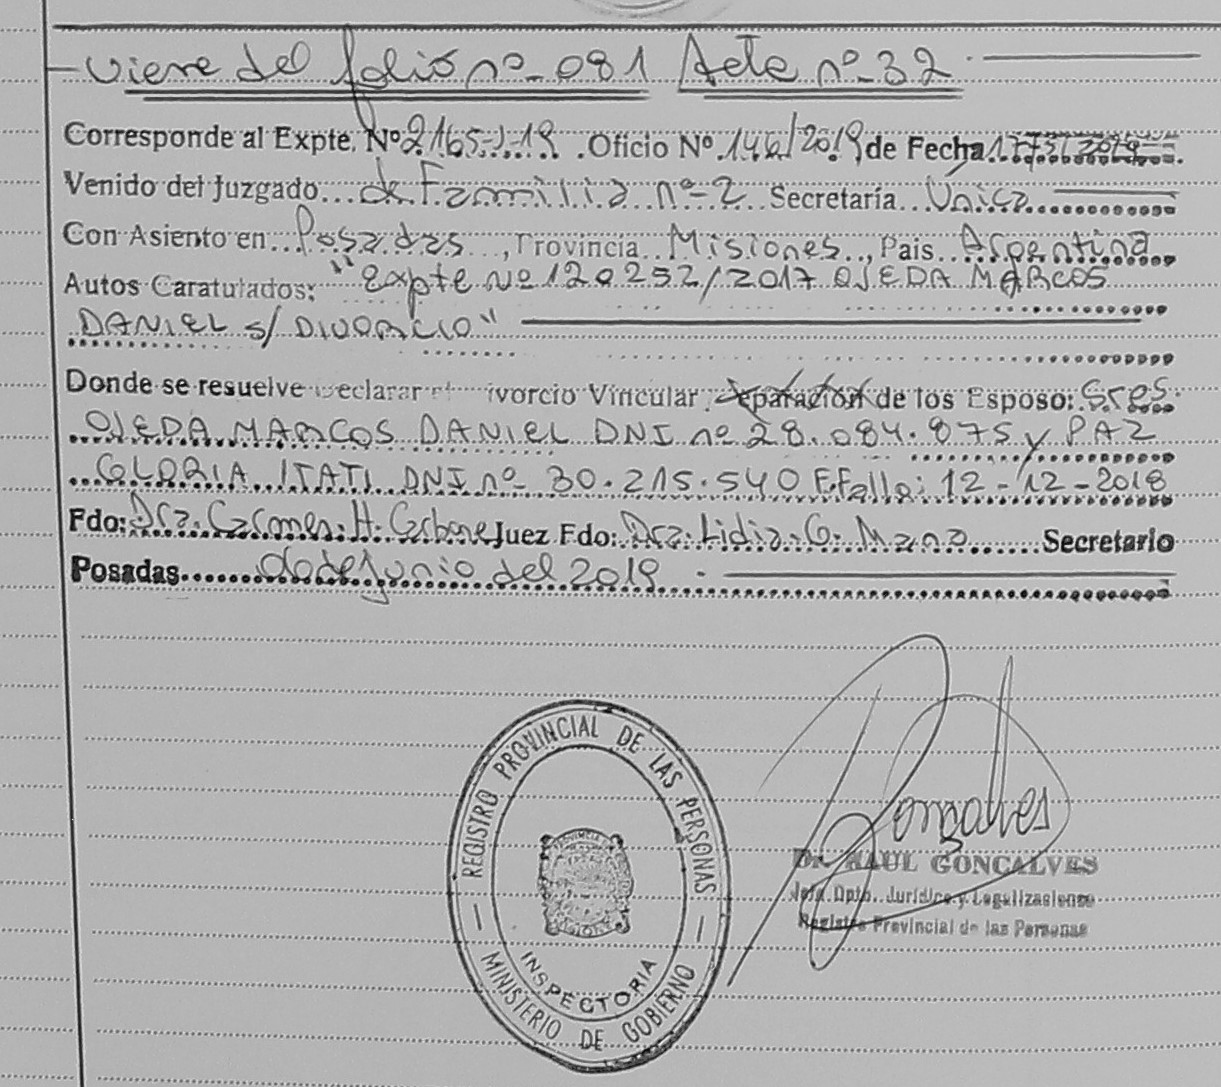 Viene del folio nº 081 Acta nº 32
Corresponde al Expte. Nº 2165-J-19 Oficio Nº 146/2019 de Fecha 17/5/2019
Venido del Juzgado de Familia nº 2 Secretaría Única
Con Asiento en Posadas, Provincia Misiones, Pais Argentina
Autos Caratulados: "Expte Nº 120252/2017 OJEDA MARCOS
DANIEL s/ DIVORCIO"
Donde se resuelve Declarar el ivorcio Vincular, Separación de los Esposo: Sres.
OJEDA MARCOS DANIEL DNI nº 28.084.875 y PAZ
GLORIA ITATI DNI nº 30.215.540 F.Fallo: 12-12-2018
Fdo: Dra. Carmen H. Carbone Juez Fdo: Dra. Lidia G. Secretario
Posadas de Junio del 2019
REGISTRO PROVINCIAL DE LAS PERSONAS
INSPECTORIA
MINISTERIO DE GOBIERNO
Gonçalves
Dr. RAUL GONCALVES
Jefe Dpto. Jurídico y Legalizaciones
Registro Provincial de las Personas